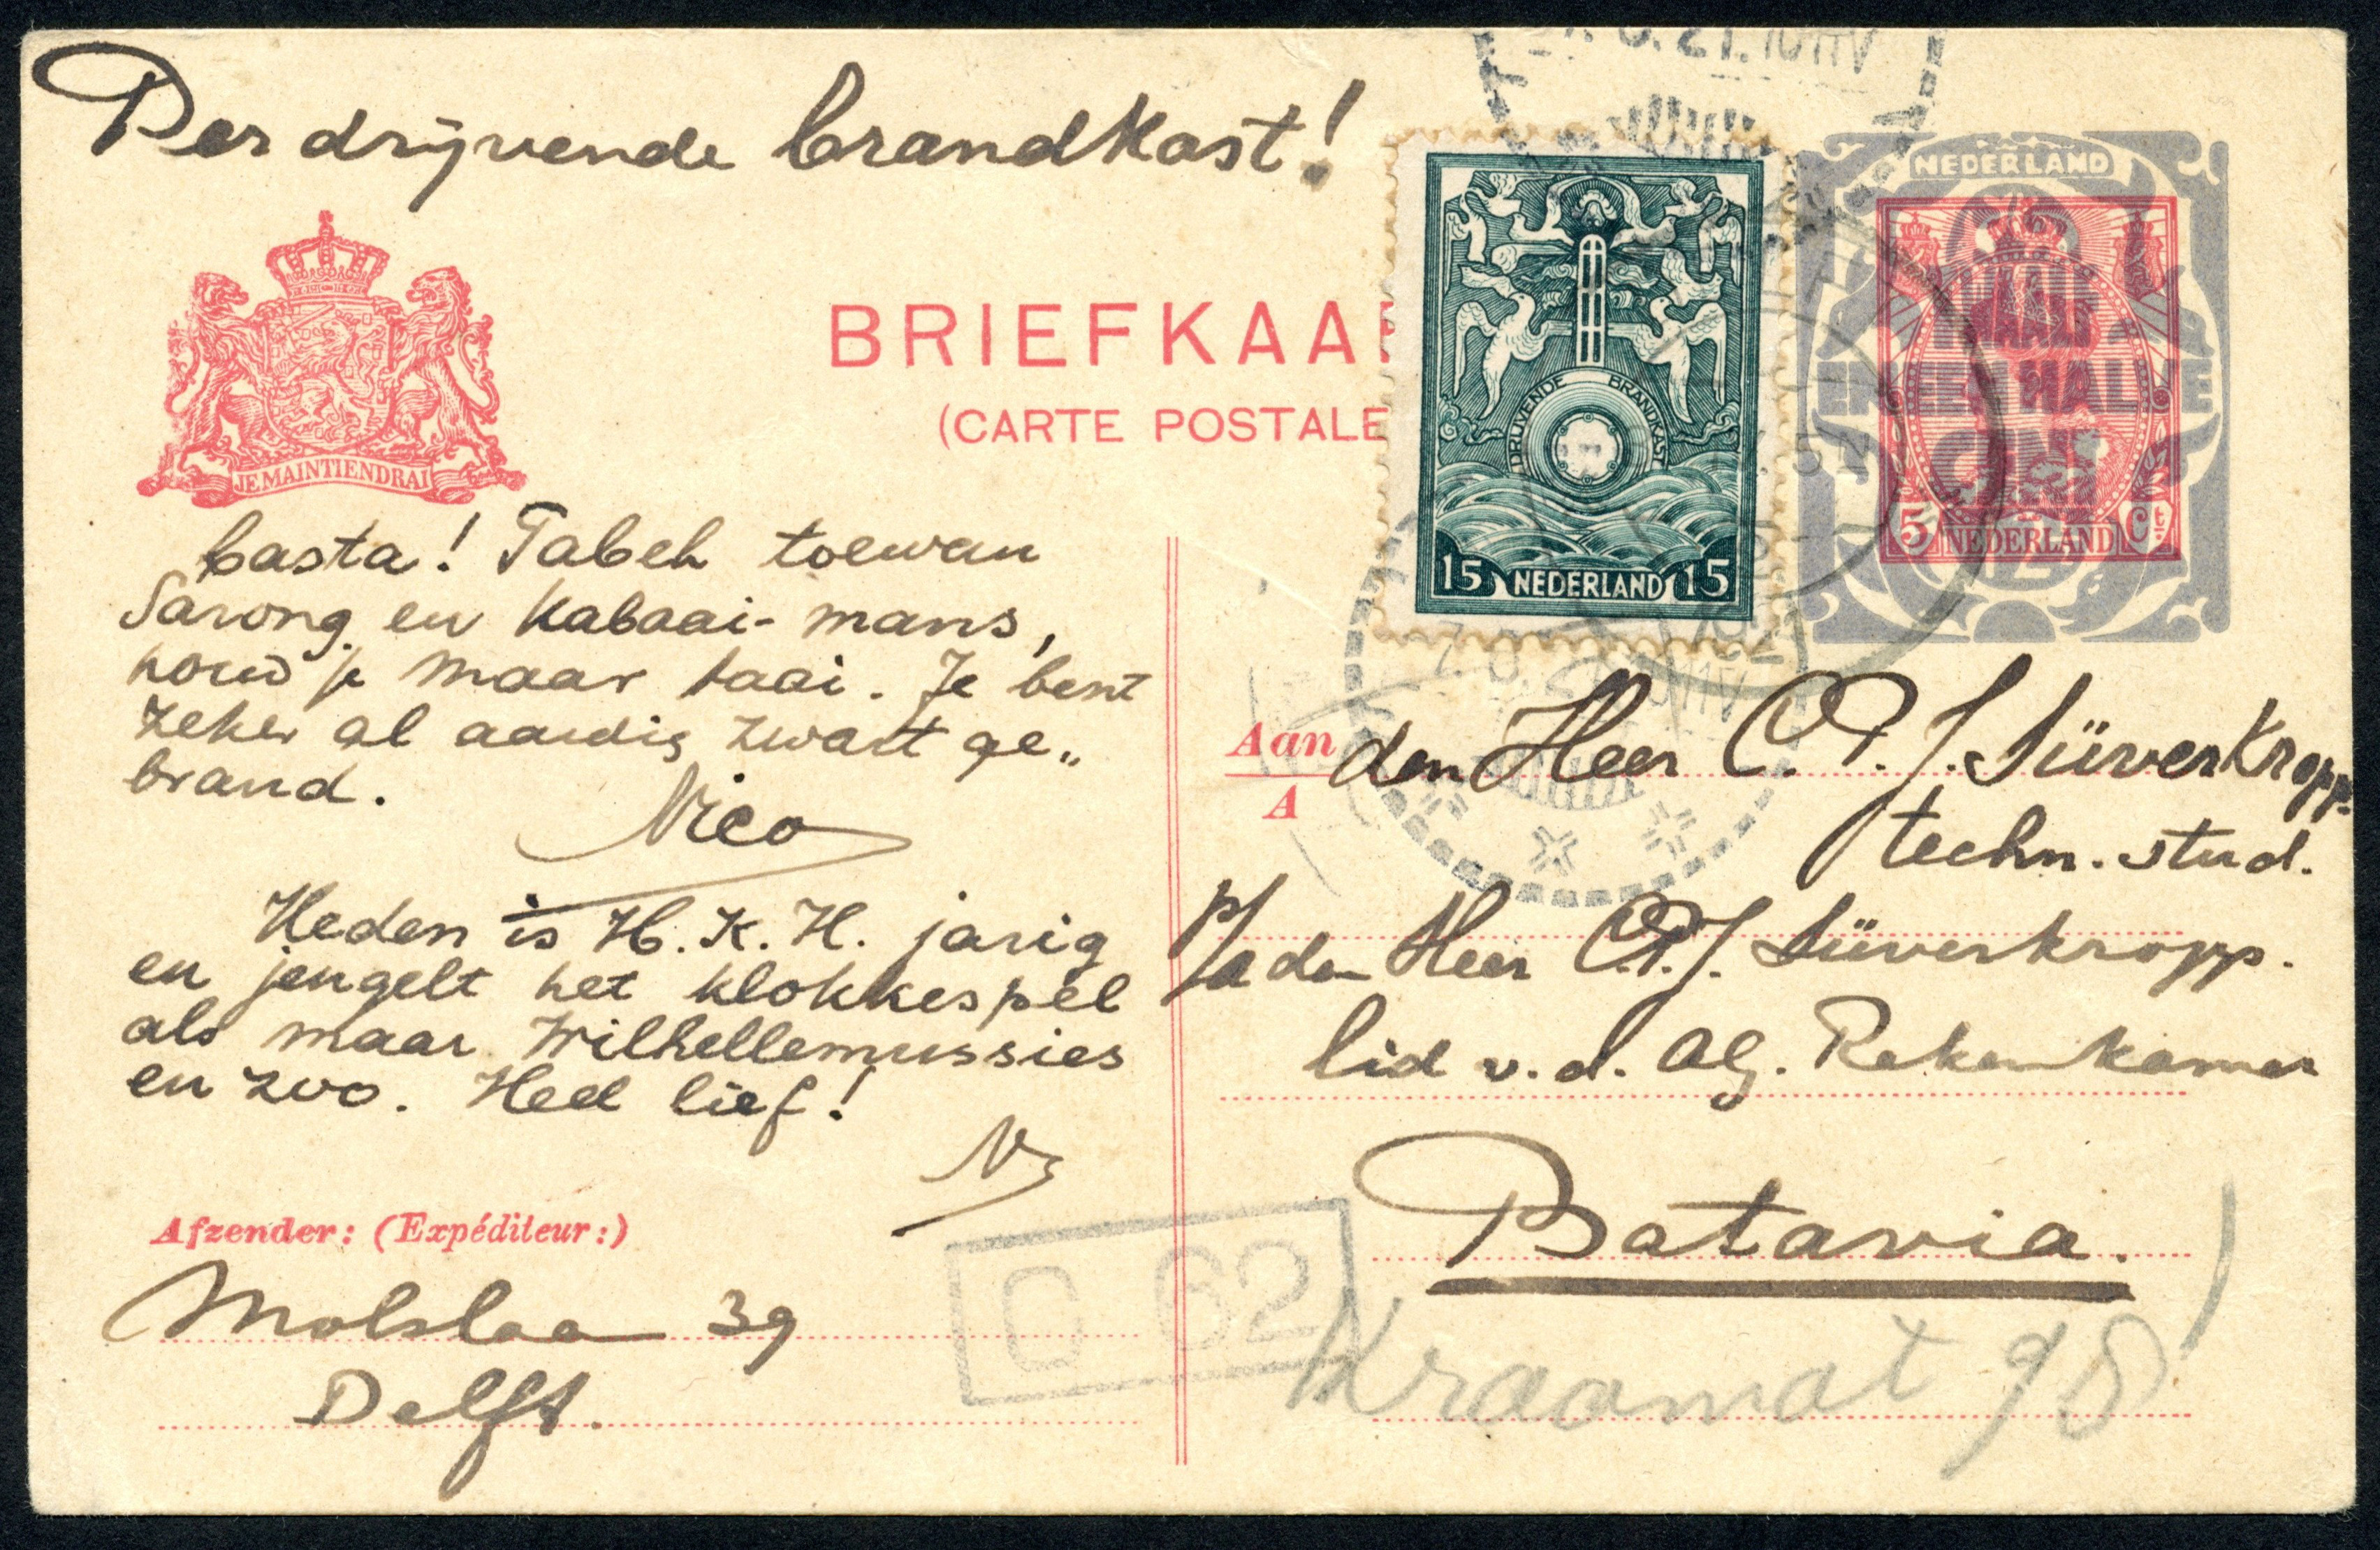 Per drijvende brandkast!
BRIEFKAA
(CARTE POSTALE
JE MAINTIENDRAI
basta! Tabeh toewan
Sarong en Kabaai-mans,
houd je maar taai. Je bent
zeker al aardig zwart ge„
brand.
Nico
Heden is H.K.H. jarig
en jengelt het klokkespel
als maar Wilhellemussies
en zoo. Heel lief!
N
Afzender: (Expéditeur:)
Molslaan 39
Delft.
21.10 V
DRIJVENDE BRANDKAST
15 NEDERLAND 15
NEDERLAND
TWAALF
EN EEN HALVE
CENT
5 NEDERLAND Ct
Aan
A
den Heer C.P.J. Süverkropp.
techn. stud.
p/a den Heer C.P.J. Süverkropp.
lid v.d. Alg. Rekenkamer
Batavia.
Kraamat 98
C 62